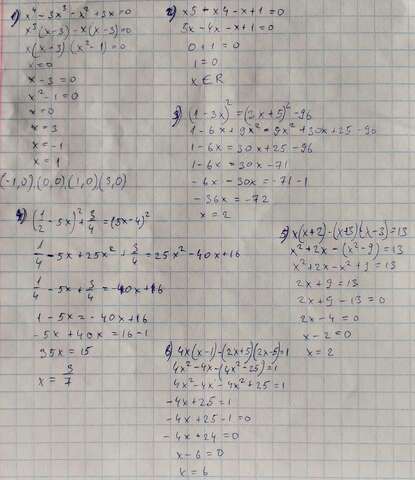 1) x⁴ - 3x³ - x² + 3x = 0
x³(x - 3) - x(x - 3) = 0
x(x - 3)(x² - 1) = 0
x = 0
x - 3 = 0
x² - 1 = 0
x = 0
x = 3
x = -1
x = 1
(-1,0), (0,0), (1,0), (3,0)
2) x5 - x4 - x + 1 = 0
5x - 4x - x + 1 = 0
0 + 1 = 0
1 = 0
x ∈ R
3) (1 - 3x)² = (2x + 5)² - 96
1 - 6x + 9x² = 9x² + 30x + 25 - 96
1 - 6x = 30x + 25 - 96
1 - 6x = 30x - 71
-6x - 30x = -71 - 1
-36x = -72
x = 2
4) (1/2 - 5x)² + 3/4 = (5x - 4)²
1/4 - 5x + 25x² + 3/4 = 25x² - 40x + 16
1/4 - 5x + 3/4 = -40x + 16
1 - 5x = -40x + 16
-5x + 40x = 16 - 1
35x = 15
x = 3/7
5) x(x + 2) - (x + 3)(x - 3) = 13
x² + 2x - (x² - 9) = 13
x² + 2x - x² + 9 = 13
2x + 9 = 13
2x + 9 - 13 = 0
2x - 4 = 0
x - 2 = 0
x = 2
6) 4x(x - 1) - (2x + 5)(2x - 5) = 1
4x² - 4x - (4x² - 25) = 1
4x² - 4x - 4x² + 25 = 1
-4x + 25 = 1
-4x + 25 - 1 = 0
-4x + 24 = 0
x - 6 = 0
x = 6